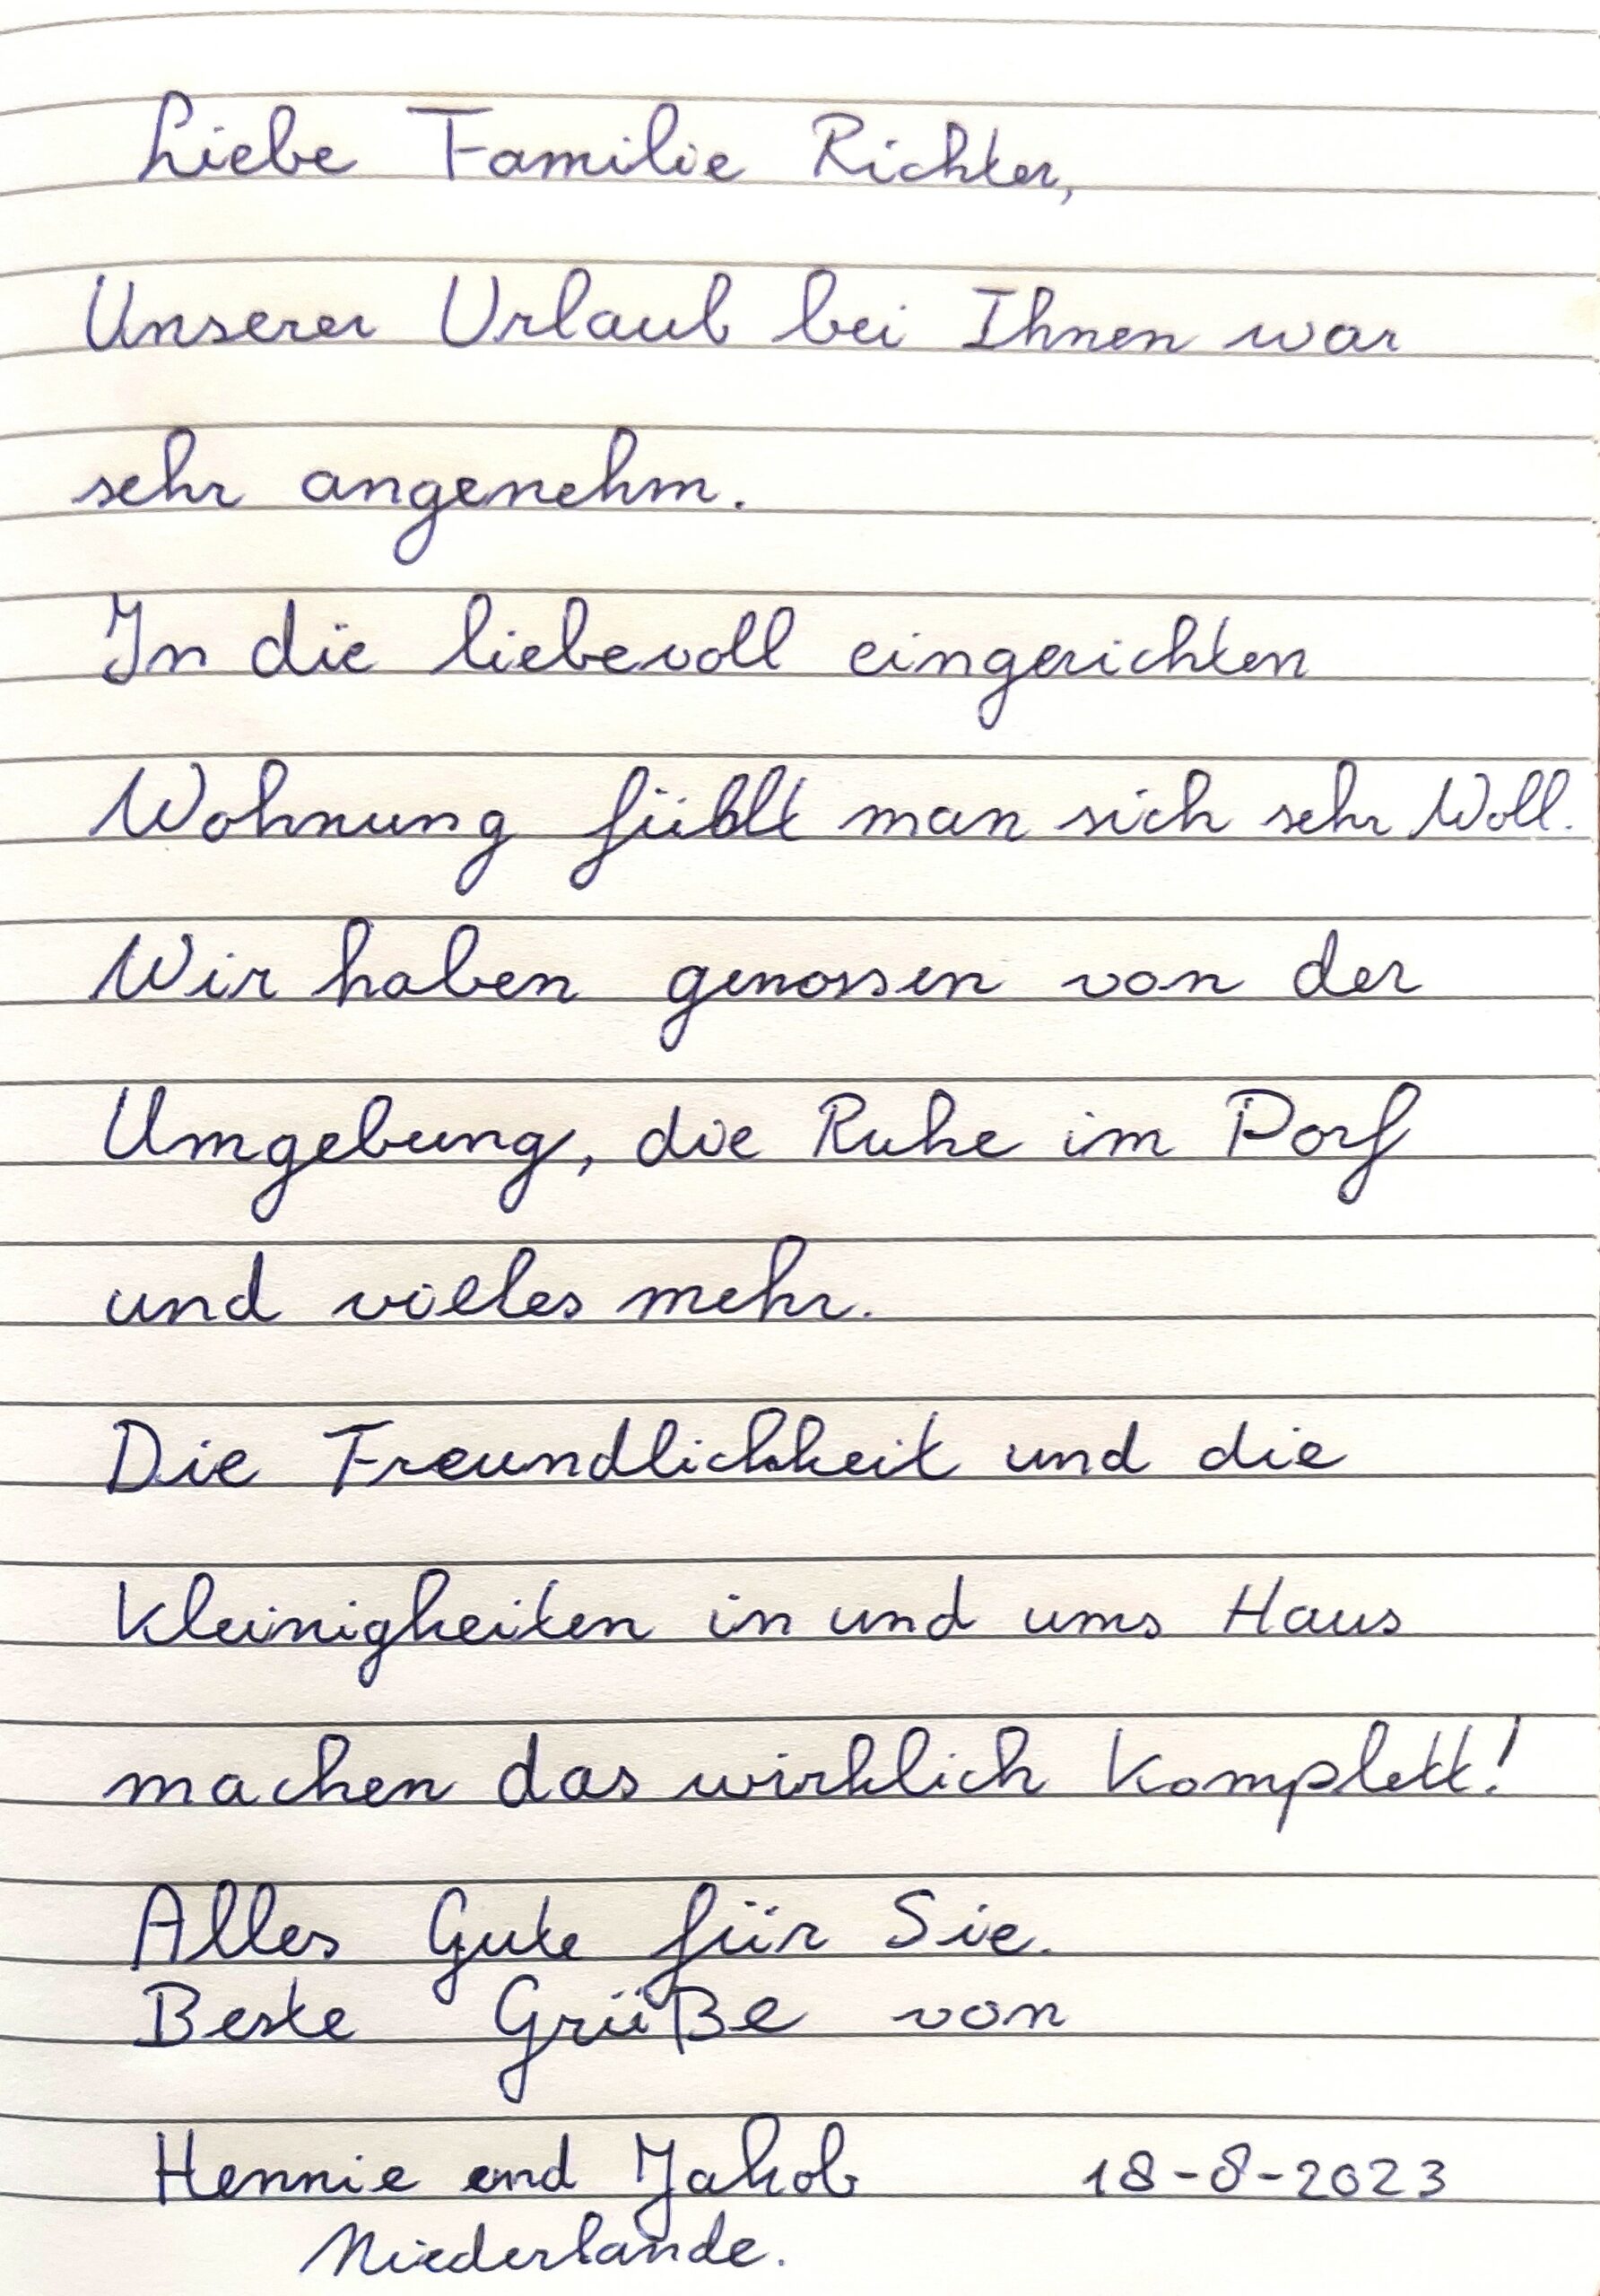 Liebe Familie Richter,
Unserer Urlaub bei Ihnen war
sehr angenehm.
In die liebevoll eingerichten
Wohnung fühlt man sich sehr Woll.
Wir haben genossen von der
Umgebung, die Ruhe im Dorf
und vielles mehr.
Die Freundlichkeit und die
Kleinigkeiten in und ums Haus
machen das wirklich Komplett!
Alles Gute für Sie.
Beste Grüße von
Hennie und Jakob 18-8-2023
Niederlande.